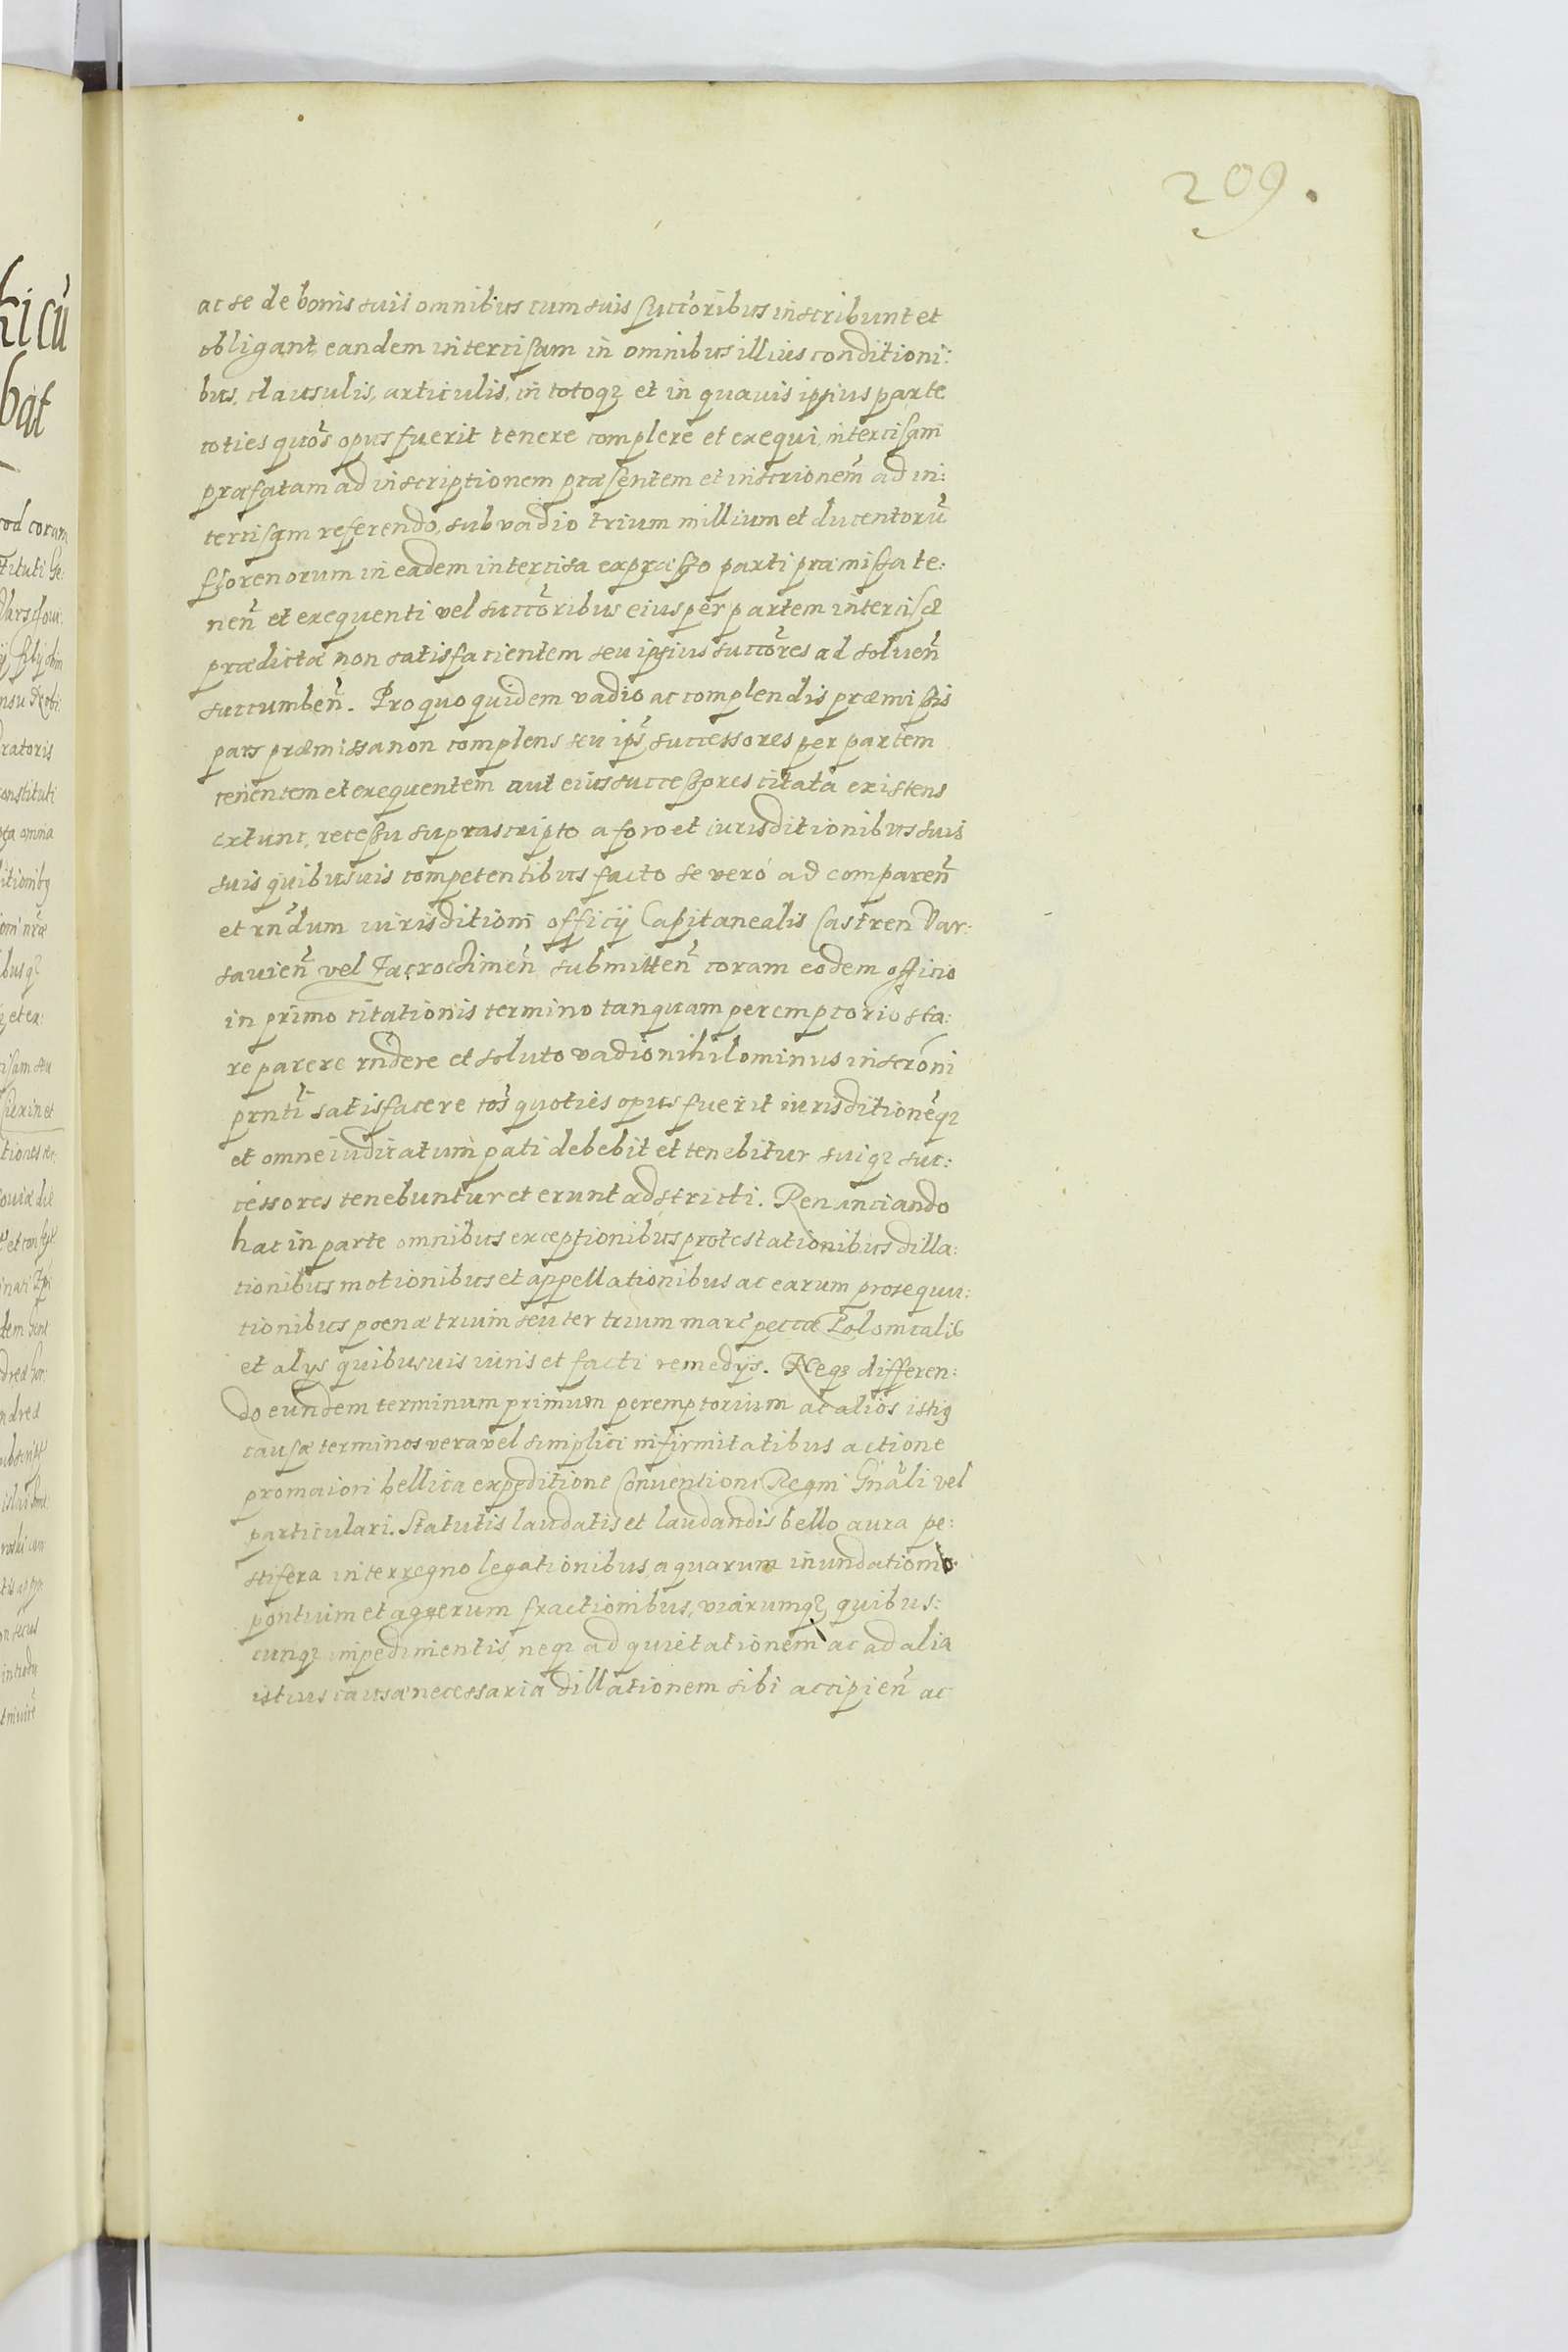 209.
ac se de bonis suis omnibus cum suis succ̃oribus inscribunt et
obligant, eandem intercisam in omnibus illius conditioni:
bus, clausulis, articulis, in totoqꝫ et in quauis ipsius parte
toties quõs opus fuerit tenere complere et exequi, intercisam
præfatam ad inscriptionem præsentem et inscrionem̃ ad in:
tercisam referendo, sub vadio trium millium et ducentorũ
florenorum in eadem intercisa expresso parti præmissa te:
neñ et exequenti vel succõribus eius per partem intercisæ
prædictæ non satisfacientem seu ipsius succõres ad solueñ
succumbeñ. Pro quo quidem vadio ac complendis præmissis
pars præmissa non complens seu ips̃ successores per partem
tenentem et exequentem aut eius successores citata existens
extunc, recessu suprascripto a foro et iurisditionibus suis
suis quibusuis competentibus facto se vero ad compareñ
et rñdum iurisditioni officij Capitanealis Castren Var:
sauieñ vel Zacrocimeñ submitteñ coram eodem officio
in primo citationis termino tanquam peremptorio sta:
re parere rñdere et soluto vadio nihilominus inscrõni
prñti satisfacere tõs quoties opus fuerit iurisditionẽqꝫ
et omne iudicatum pati debebit et tenebitur suiqꝫ suc:
cessores tenebuntur et erunt adstricti. Renunciando
hac in parte omnibus exceptionibus protestationibus dilla:
tionibus motionibus et appellationibus ac earum prosequu:
tionibus poenæ trium seu ter trium marc̃ peccæ Polonicalis
et alys quibusuis iuris et facti remedijs. Neqꝫ differen:
do eundem terminum primum peremptorium ac alios istiꝯ
causæ terminos vera vel simplici infirmitatibus actione
pro maiori bellica expeditione Conuentione Regni Gnãli vel
particulari. Statutis laudatis et laudandis bello aura pe:
stifera interregno legationibus, aquarum inundationib.
pontium et aggerum fractionibus, viarumqꝫ quibus:
cunqꝫ impedimentis, neqꝫ ad quietationem ac ad alia
istius causæ necessaria dillationem sibi accipieñ ac